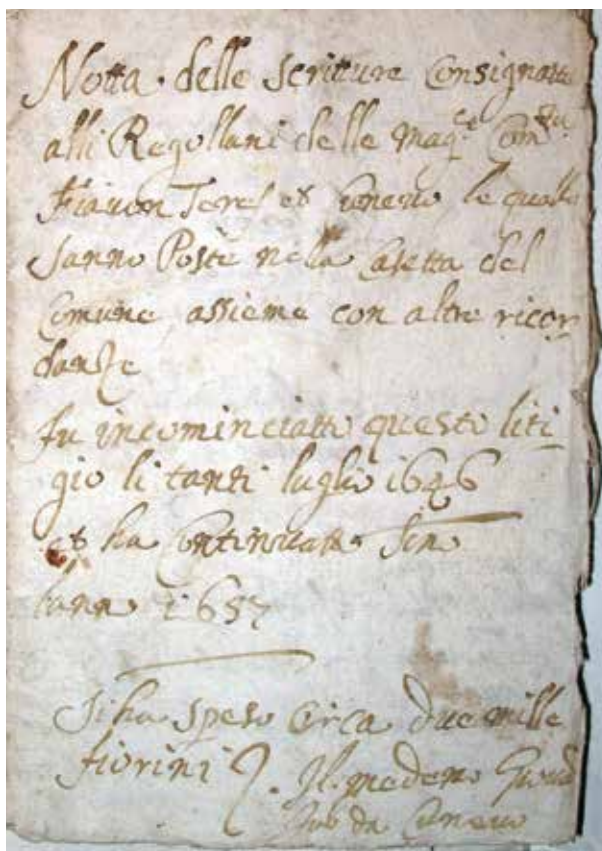 Notta delle scritture consignatte
alli Regollani delle Mag.ce Com.tu
Flavon Teres et Cuneuo, le qualle
sanno Poste nella Casetta del
Comune assieme con altre ricor-
danze
Fu incominciatto questo liti-
gio li tanti luglio 1646
et ha Continuatto sin
lann 1657
Si ha speso circa due mille
fiorini Il medemo
da Cuneuo